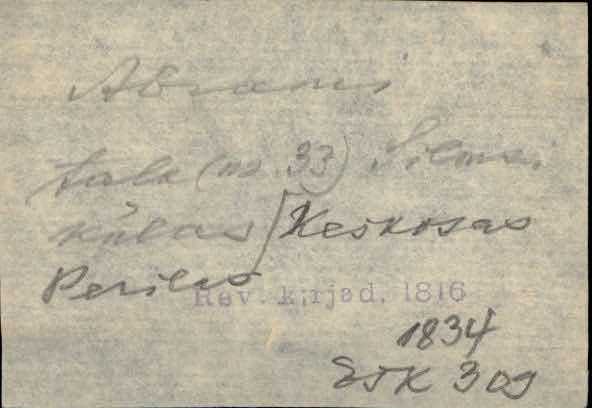 Abrami
talu (nr. 33) Silmsi
külas / Keskosas
Perilas
Rev. kirjad. 1816
1834